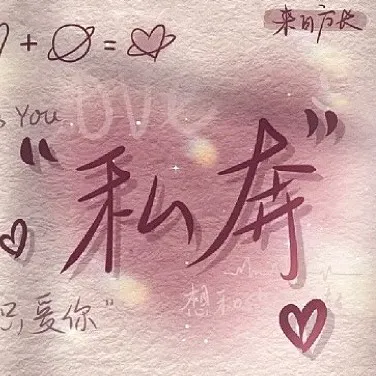 来日方长
+ =
YOU
LOVE
“私奔”
只爱你”
想和